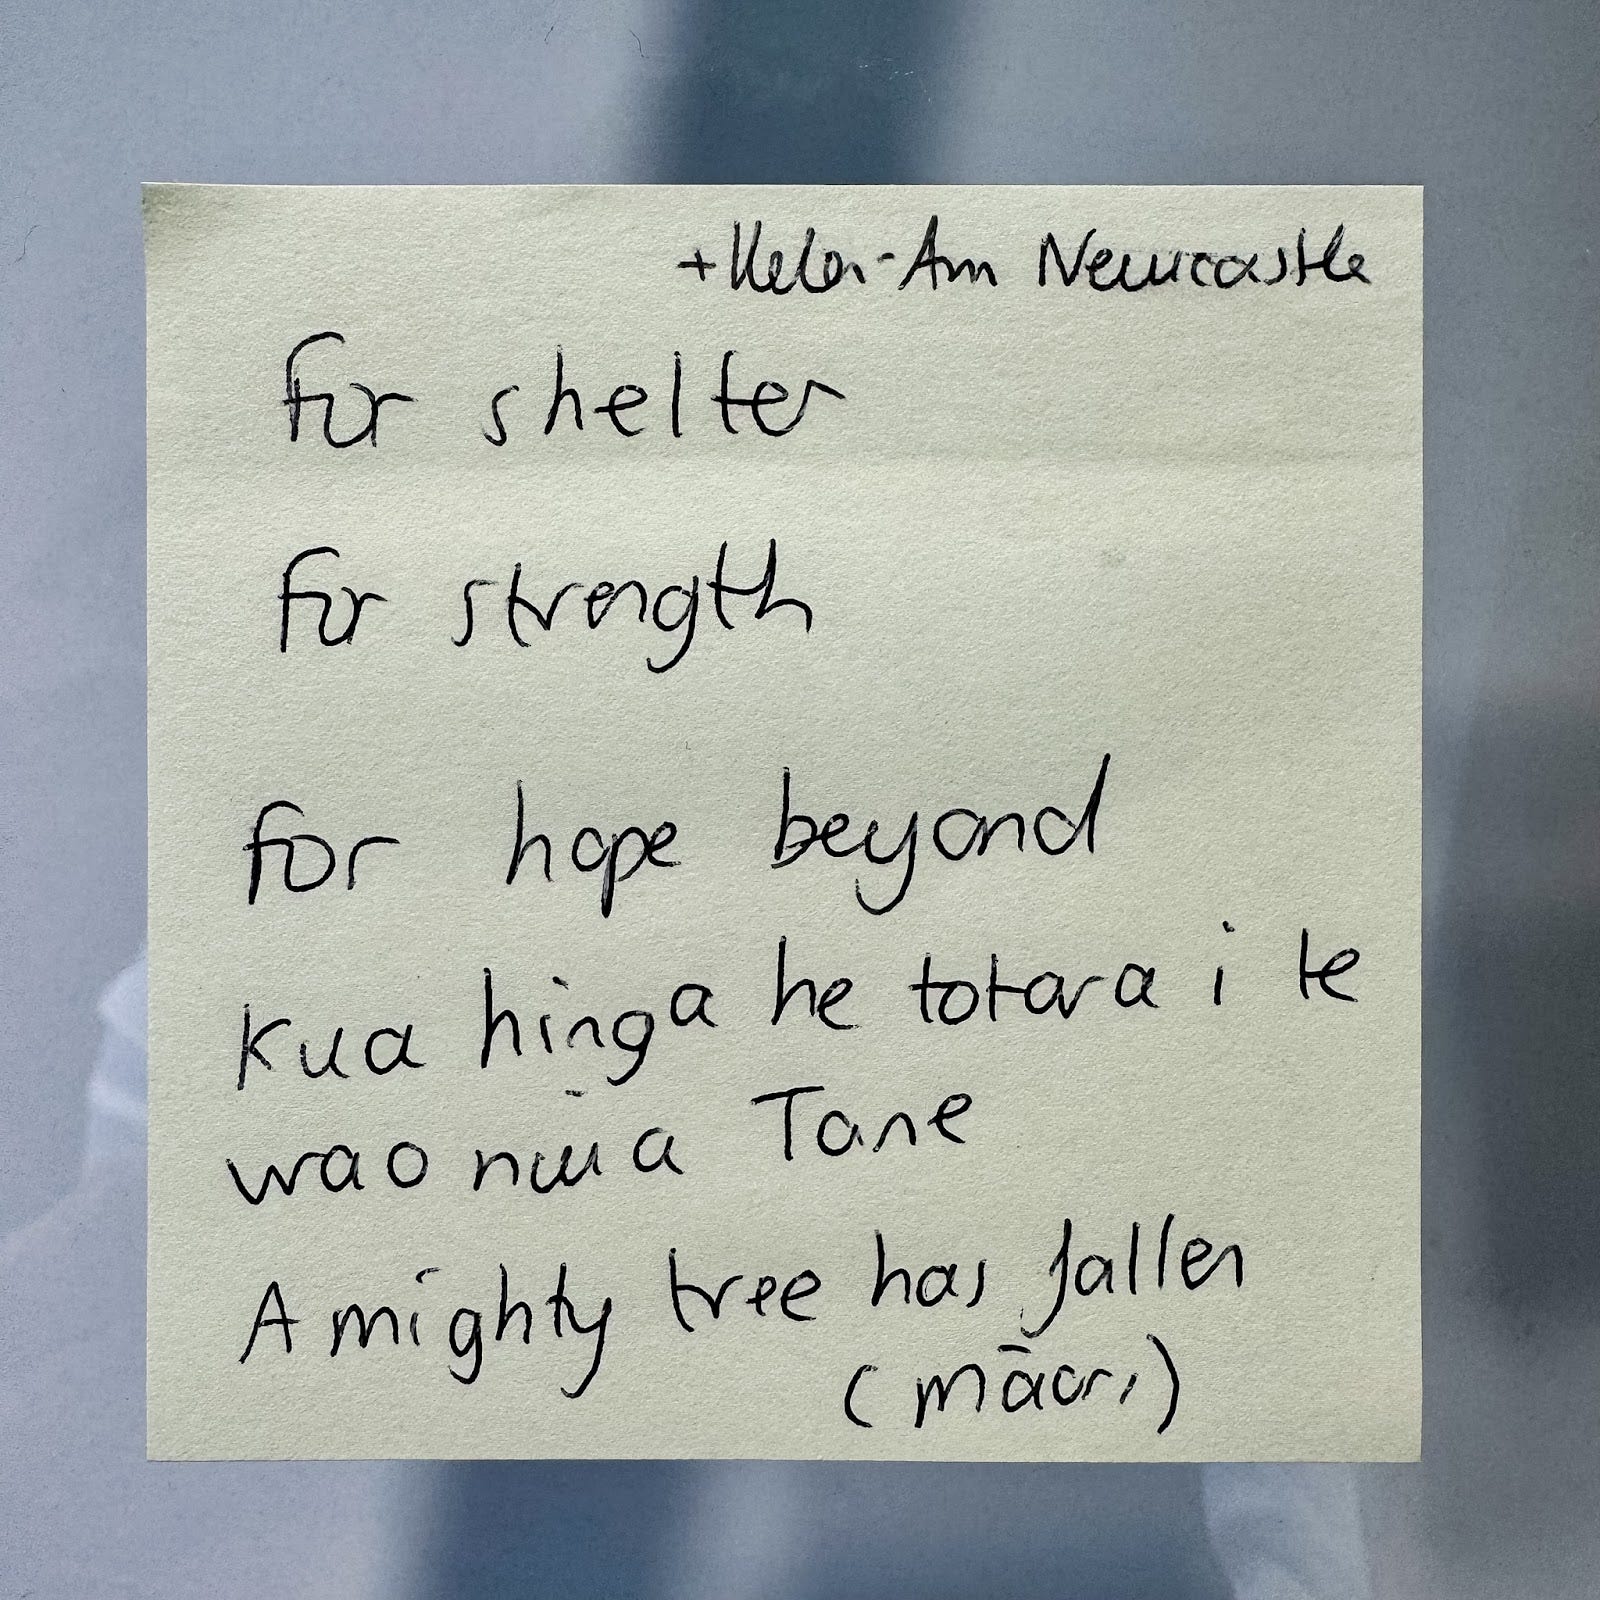 +Helen-Ann Newcastle
for shelter
for strength
for hope beyond
Kua hinga he totara i te
wao nui a Tane
A mighty tree has fallen
(māori)